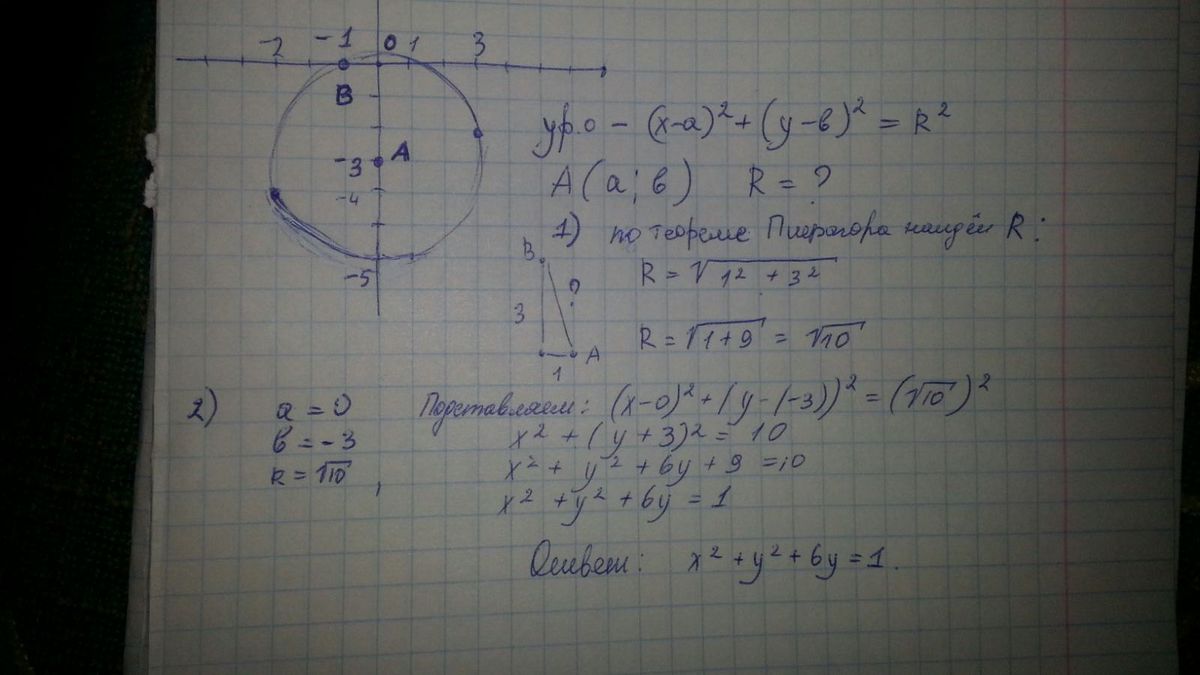 -2 -1 0 1 3
B
-3 A
-4
-5
ур.о - (x-a)² + (y-в)² = R²
A (a; в) R = ?
1) по теореме Пифагора найдём R:
B
3 ?
1 A
R = √(1² + 3²)
R = √(1+9) = √10
2) a = 0
в = -3
R = √10,
Подставляем: (x-0)² + (y-(-3))² = (√10)²
x² + (y+3)² = 10
x² + y² + 6y + 9 = 10
x² + y² + 6y = 1
Ответ: x² + y² + 6y = 1.